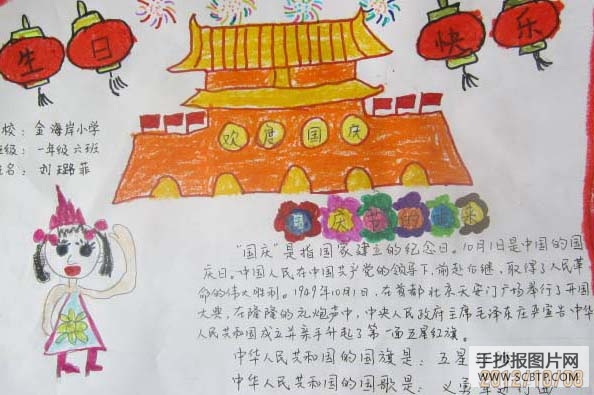 生日快乐
校：金海岸小学
级：一年级六班
名：刘璐菲
欢度国庆
国庆节的由来
"国庆"是指国家建立的纪念日。10月1日是中国的国
庆日。中国人民在中国共产党的领导下，前赴后继，取得了人民革
命的伟大胜利。1949年10月1日，在首都北京天安门广场举行了开国
大典，在隆隆的礼炮声中，中央人民政府主席毛泽东庄严宣告中华
人民共和国成立并亲手升起了第一面五星红旗。
中华人民共和国的国旗是：五星
中华人民共和国的国歌是：义勇军进行曲
手抄报图片网
WWW.SCBTP.COM
2012/10/08